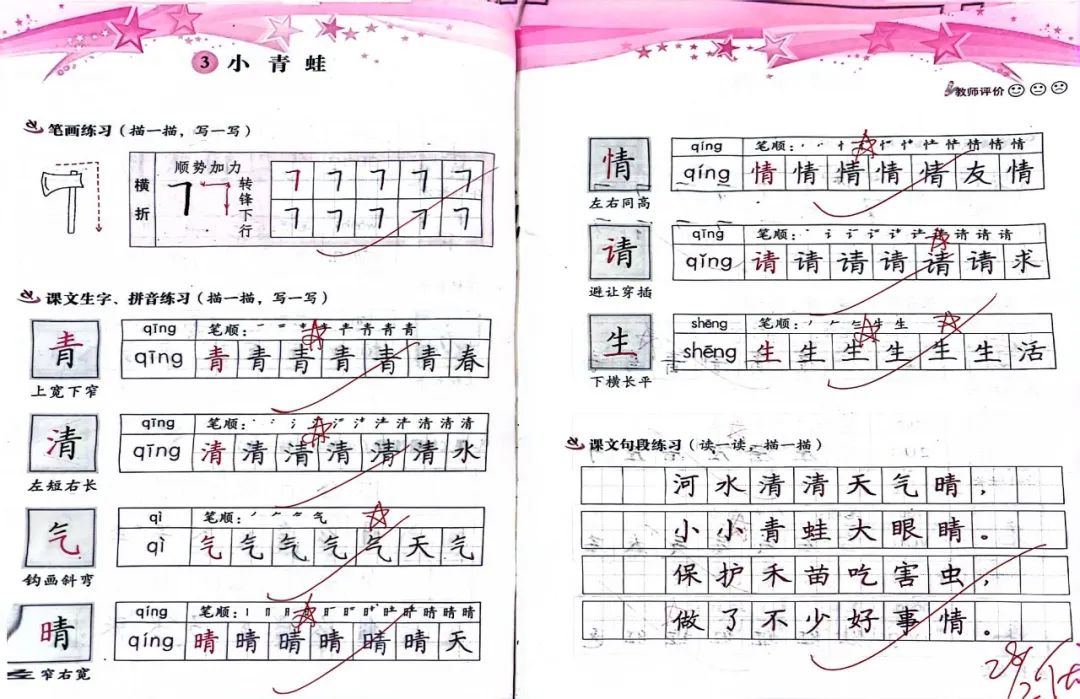 3 小青蛙
笔画练习（描一描，写一写）
横折
顺势加力
转锋下行
㇕ ㇕ ㇕ ㇕ ㇕
㇕ ㇕ ㇕ ㇕ ㇕
课文生字、拼音练习（描一描，写一写）
青
上宽下窄
qīng 笔顺：青 青 青
qīng 青 青 青 青 青 青 春
清
左短右长
qīng 笔顺：清 清 清
qīng 清 清 清 清 清 清 水
气
钩画斜弯
qì 笔顺：气
qì 气 气 气 气 气 天 气
晴
窄右宽
qíng 笔顺：晴 晴 晴
qíng 晴 晴 晴 晴 晴 晴 天
教师评价
情
左右同高
qíng 笔顺：情 情 情
qíng 情 情 情 情 情 友 情
请
避让穿插
qǐng 笔顺：请 请 请
qǐng 请 请 请 请 请 请 求
生
下横长平
shēng 笔顺：生 生
shēng 生 生 生 生 生 生 活
课文句段练习（读一读，描一描）
河水清清天气晴，
小小青蛙大眼睛。
保护禾苗吃害虫，
做了不少好事情。